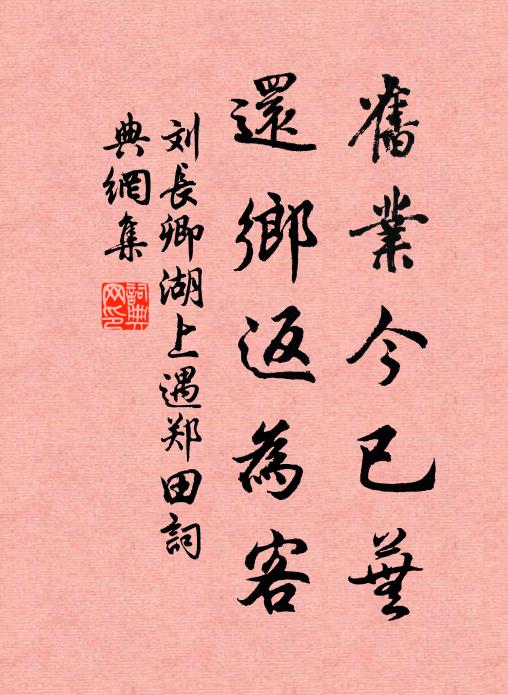 舊業今已蕪
還鄉返為客
刘長卿湖上遇郑田詞
典網集
詞典网印